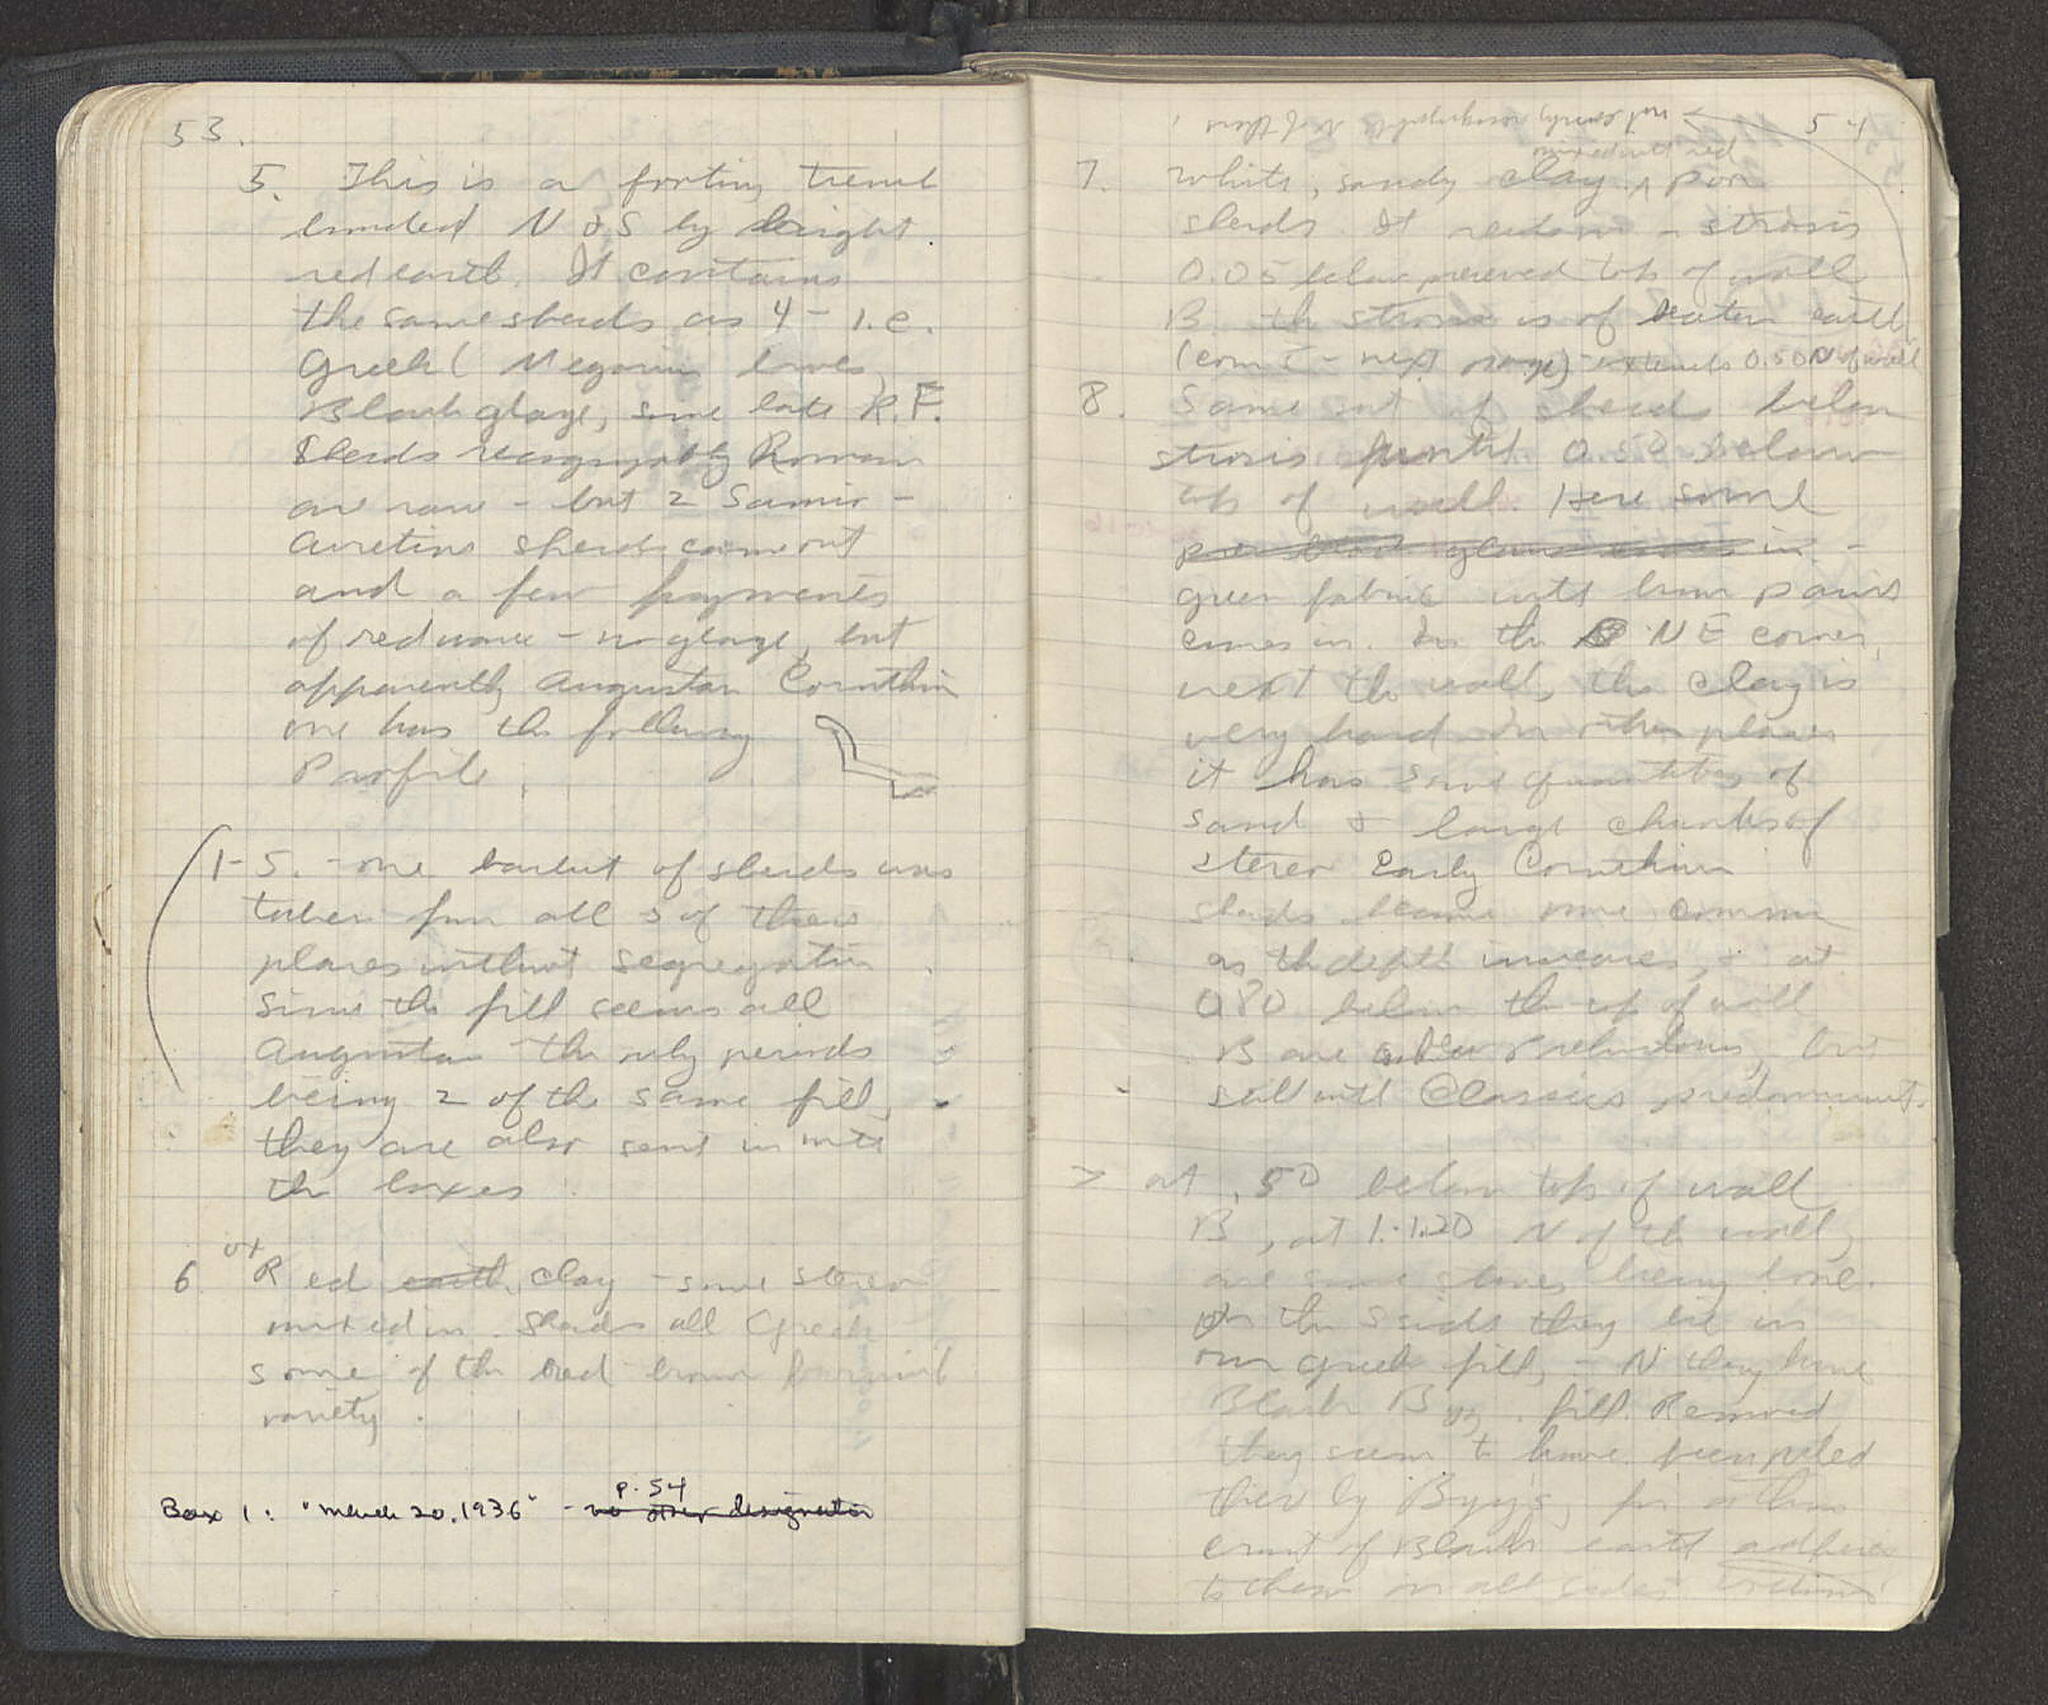 53.
5. This is a footing trench
bounded N & S by bright
red earth. It contains
the same sherds as 4 - i.e.
Greek (Megarian bowls,
Black glaze, some late R.F.
Sherds recognizably Roman
are rare - but 2 Samio -
Arretine sherds came out
and a few fragments
of red ware - no glaze, but
apparently Augustan Corinthian
one has the following
Profile.
1-5. - one basket of sherds was
taken from all 5 of these
places without segregation
Since the fill seems all
Augustan the only periods
being 2 of the same fill,
they are also sent in with
the boxes
6 Red earth clay - some stereo
mixed in. Sherds all Greek
some of the red brown
variety.
p. 54
Box 1: "March 20, 1936" - no other designation
54
not easily recognizable
mixed with red
7. White, sandy clay. poor
sherds. It rests on a strosis
0.05 below preserved top of wall
B. the strosis is of beaten earth
(con't - next page) - extends 0.50 N of wall
8. Same sort of sherds below
strosis until 0.50 below
top of wall. Here some
in -
green fabric with brown paint
comes in. In the NE corner,
next the wall, the clay is
very hard in other places
it has some quantities of
sand & large chunks of
stereo Early Corinthian
sherds become more common
as the depth increases, & at
0.80 below the top of wall
B are
still with Classics predominant.
> at .50 below top of wall
B, at 1.-1.20 N of the wall,
are some stones lying loose.
On the S side they lie in
our Greek fill, - N they have
Black Byz. fill. Removed
they seem to have been piled
there by Byz's, for a thin
crust of Black earth adheres
to them on all sides